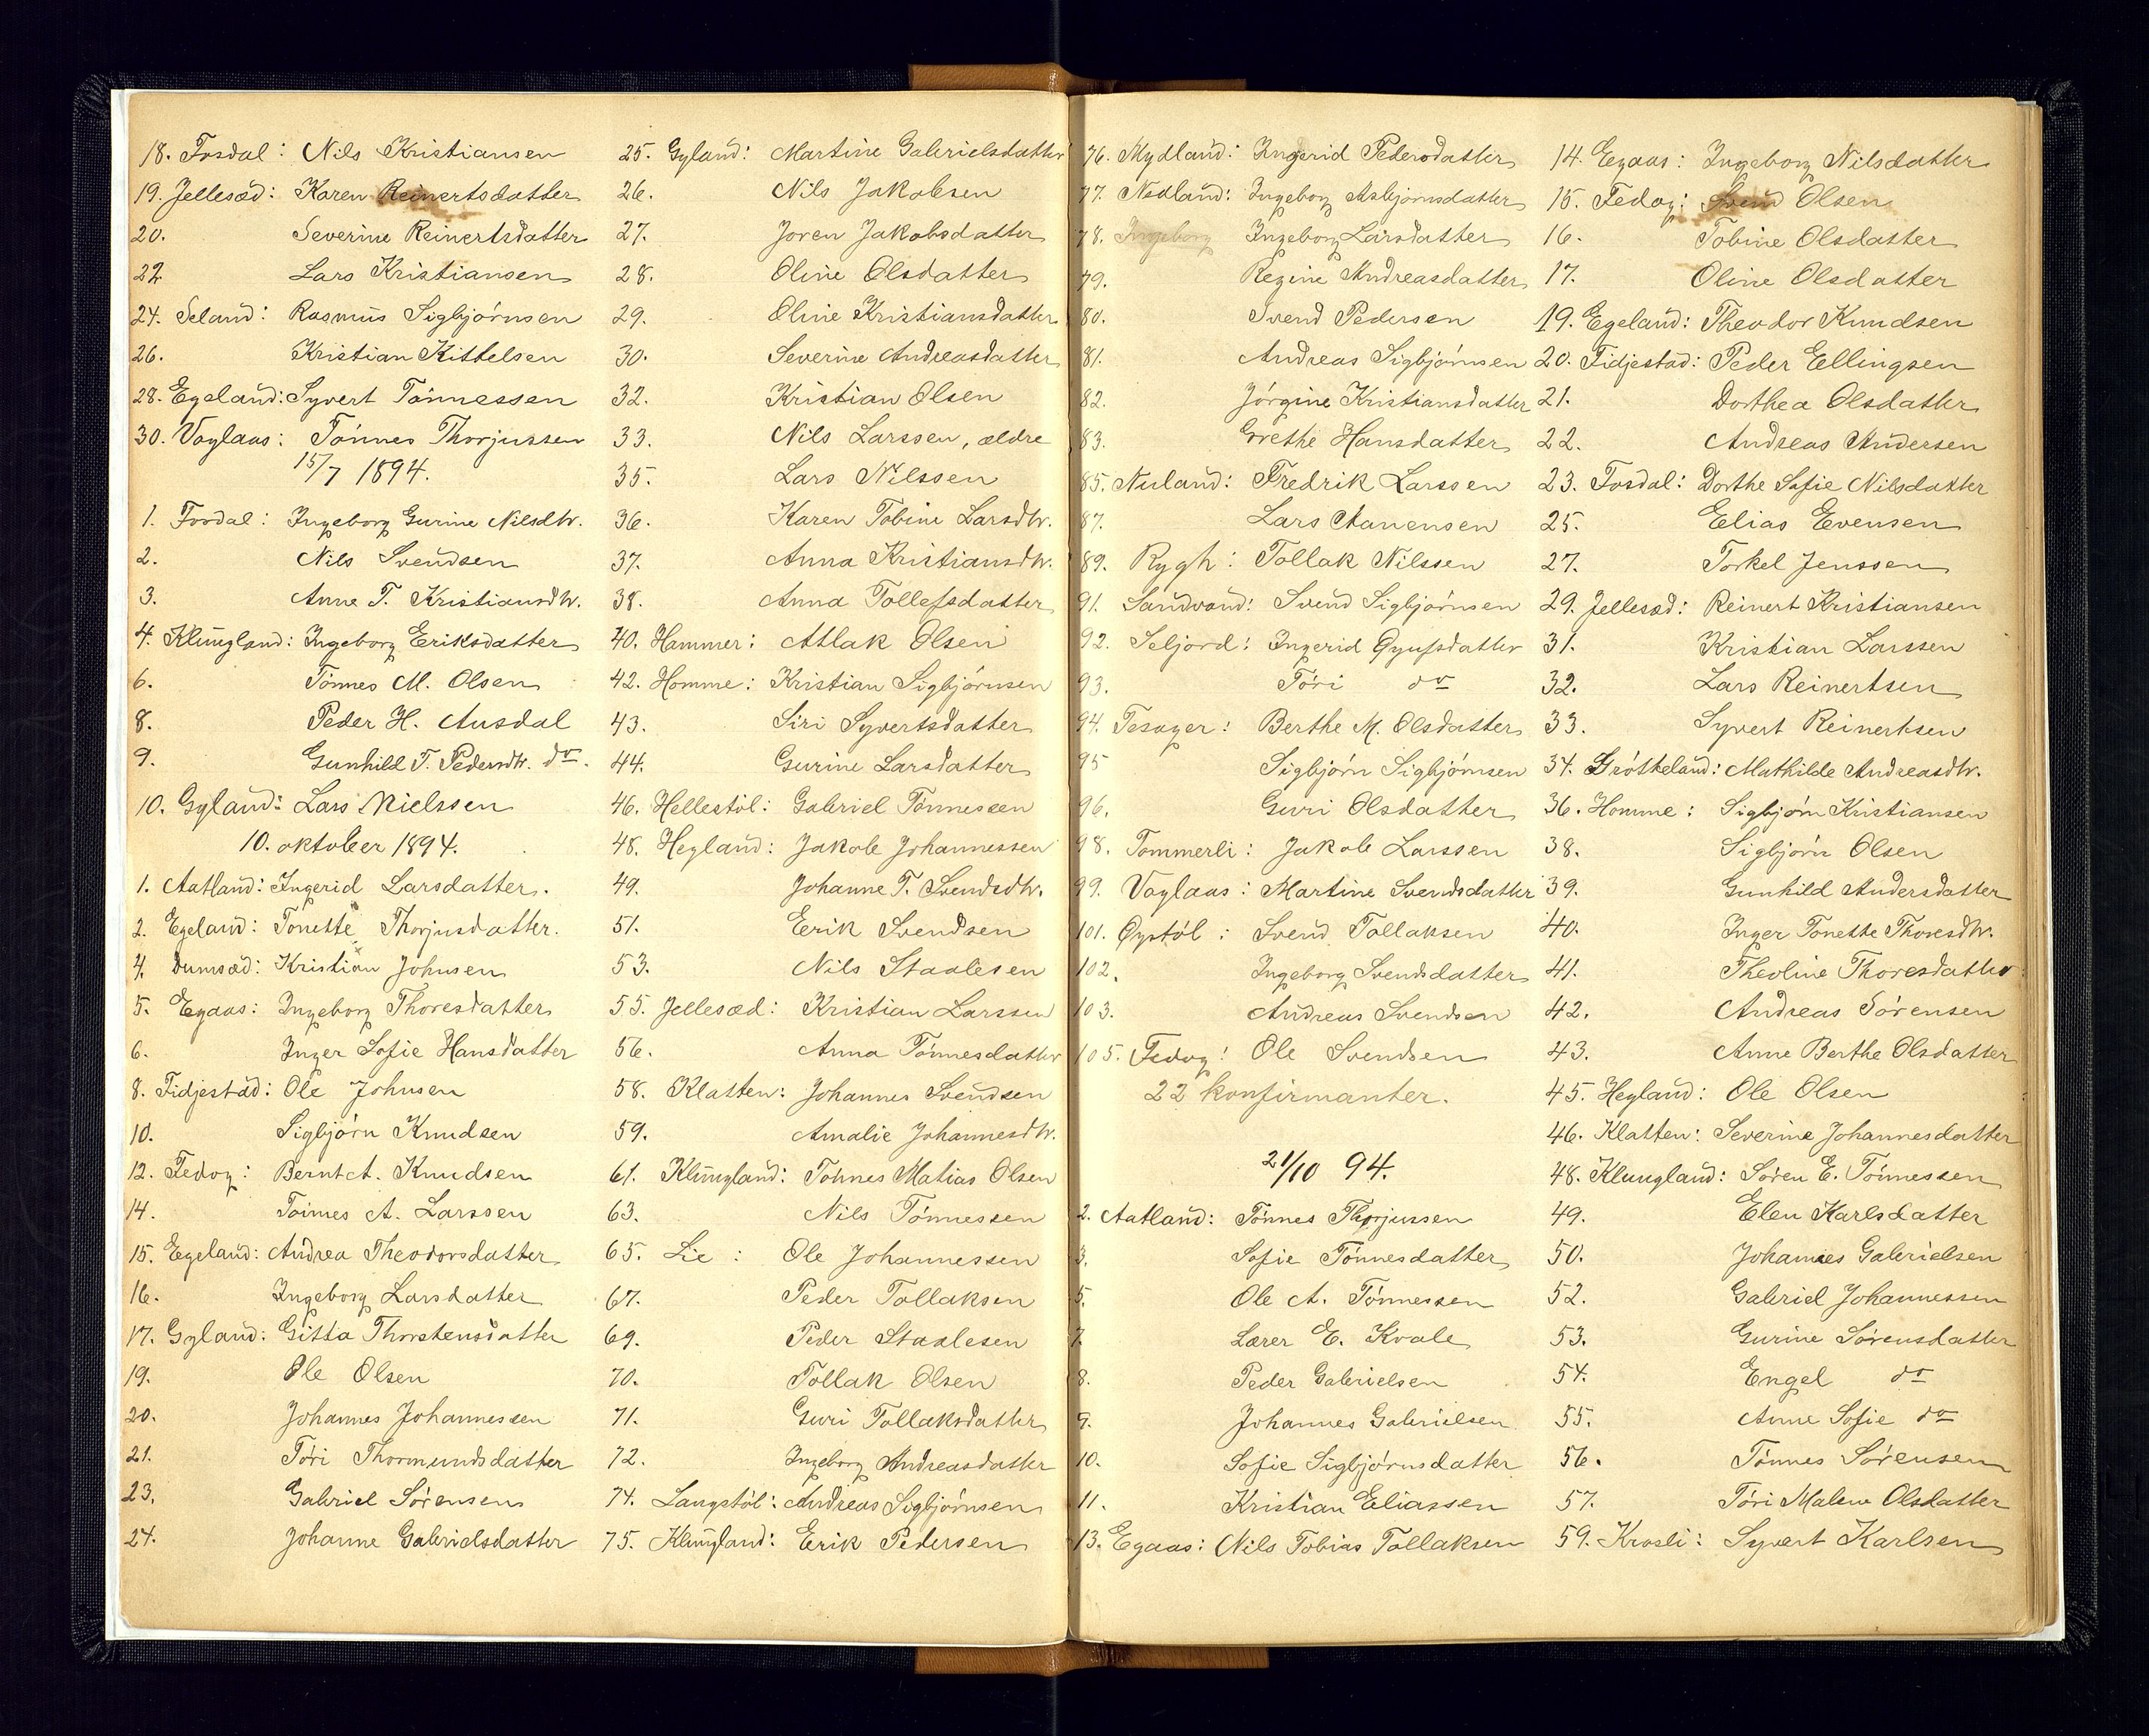 18. Fosdal: Nils Kristiansen
19. Jellesæd: Karen Reinertsdatter
20. Severine Reinertsdatter
22 Lars Kristiansen
24. Seland: Rasmus Sigbjørnsen
26. Kristian Kittelsen
28. Egeland: Syvert Tønnessen
30. Vaglaas: Tønnes Thorjussen
15/7 1894.
1. Fosdal: Ingeborg Gurine Nilsdtr.
2. Nils Svendsen
3. Anne T. Kristiansdtr.
4. Klungland: Ingeborg Eriksdatter
6. Tønnes M. Olsen
8. Peder H. Ausdal
9. Gunhild T. Pedersdtr. do.
10. Gyland: Lars Nielssen
10. oktober 1894.
1. Aatland: Ingerid Larsdatter.
2. Egeland: Tonette Thorjusdatter.
4. Dumsæd: Kristian Johnsen
5. Egaas: Ingeborg Thoresdatter
6. Inger Sofie Hansdatter
8. Fidjestad: Ole Johnsen
10. Sigbjørn Knudsen
12. Fedog: Bernt A. Knudsen
14. Tønnes A. Larssen
15. Egeland: Andrea Theodorsdatter
16. Ingeborg Larsdatter
17. Gyland: Gitta Thorstensdatter
19. Ole Olsen
20. Johannes Johannessen
21. Tøri Thormundsdatter
23. Gabriel Sørensen
24. Johanne Gabrielsdatter
25. Gyland: Martine Gabrielsdatter
26. Nils Jakobsen
27. Joren Jakobsdatter
28. Oline Olsdatter
29. Oline Kristiansdatter
30. Severine Andreasdatter
32. Kristian Olsen
33. Nils Larssen, ældre
35. Lars Nilssen
36. Karen Tobine Larsdtr.
37. Anna Kristiansdtr.
38. Anna Tollefsdatter
40. Hammer: Atlak Olsen
42. Homme: Kristian Sigbjørnsen
43. Siri Syvertsdatter
44. Gurine Larsdatter
46. Hellestøl: Gabriel Tønnessen
48. Hegland: Jakob Johannessen
49. Johanne T. Svendsdtr.
51. Erik Svendsen
53. Nils Staalesen
55. Jellesæd: Kristian Larssen
56. Anna Tønnesdatter
58. Klatten: Johannes Svendsen
59. Amalie Johannesdtr.
61. Klungland: Tønnes Matias Olsen
63. Nils Tønnessen
65. Lie: Ole Johannessen
67. Peder Tollaksen
69. Peder Staalesen
70. Tollak Olsen
71. Guri Tollaksdatter
72. Ingeborg Andreasdatter
74. Langstøl: Andreas Sigbjørnsen
75. Klungland: Erik Pedersen
76. Mydland: Ingerid Pedersdatter
77. Nedland: Ingeborg Asbjørnsdatter
78. Ingeborg Ingeborg Larsdatter
79. Regine Andreasdatter
80. Svend Pedersen
81. Andreas Sigbjørnsen
82. Jørgine Kristiansdatter
83. Grethe Hansdatter
85. Nuland: Fredrik Larssen
87. Lars Aanensen
89. Rygh: Tollak Nilssen
91. Sandvand: Svend Sigbjørnsen
92. Seljord: Ingerid Gyufsdatter
93. Tøri do
94. Tesager: Berthe M. Olsdatter
95 Sigbjørn Sigbjørnsen
96. Guri Olsdatter
98. Tommerli: Jakob Larssen
99. Vaglaas: Martine Svendsdatter
101. Øystøl: Svend Tollaksen
102. Ingeborg Svendsdatter
103. Andreas Svendsen
105. Fedog: Ole Svendsen
22 konfirmanter.
21/10 94.
2. Aatland: Tønnes Thorjussen
3. Sofie Tønnesdatter
5. Ole A. Tønnessen
7. Lærer E. Kvale
8. Peder Gabrielsen
9. Johannes Gabrielsen
10. Sofie Sigbjørnsdatter
11. Kristian Eliassen
13. Egaas: Nils Tobias Tollaksen
14. Egaas: Ingeborg Nilsdatter
15. Fedog: Svend Olsen
16. Tobine Olsdatter
17. Oline Olsdatter
19. Egeland: Theodor Knudsen
20. Fidjestad: Peder Ellingsen
21. Dorthea Olsdatter
22. Andreas Andersen
23. Fosdal: Dorthe Sofie Nilsdatter
25. Elias Evensen
27. Torkel Jenssen
29. Jellesæd: Reinert Kristiansen
31. Kristian Larssen
32. Lars Reinertsen
33. Syvert Reinertsen
34. Grøtteland: Mathilde Andreasdtr.
36. Homme: Sigbjørn Kristiansen
38. Sigbjørn Olsen
39. Gunhild Andersdatter
40. Inger Tonette Thoresdtr.
41. Theoline Thoresdatter
42. Andreas Sørensen
43. Anne Berthe Olsdatter
45. Hegland: Ole Olsen
46. Klatten: Severine Johannesdatter
48. Klungland: Søren E. Tønnessen
49. Elen Karlsdatter
50. Johannes Gabrielsen
52. Gabriel Johannessen
53. Gurine Sørensdatter
54. Engel do
55. Anne Sofie do
56. Tønnes Sørensen
57. Tøri Malene Olsdatter
59. Krosli: Syvert Karlsen